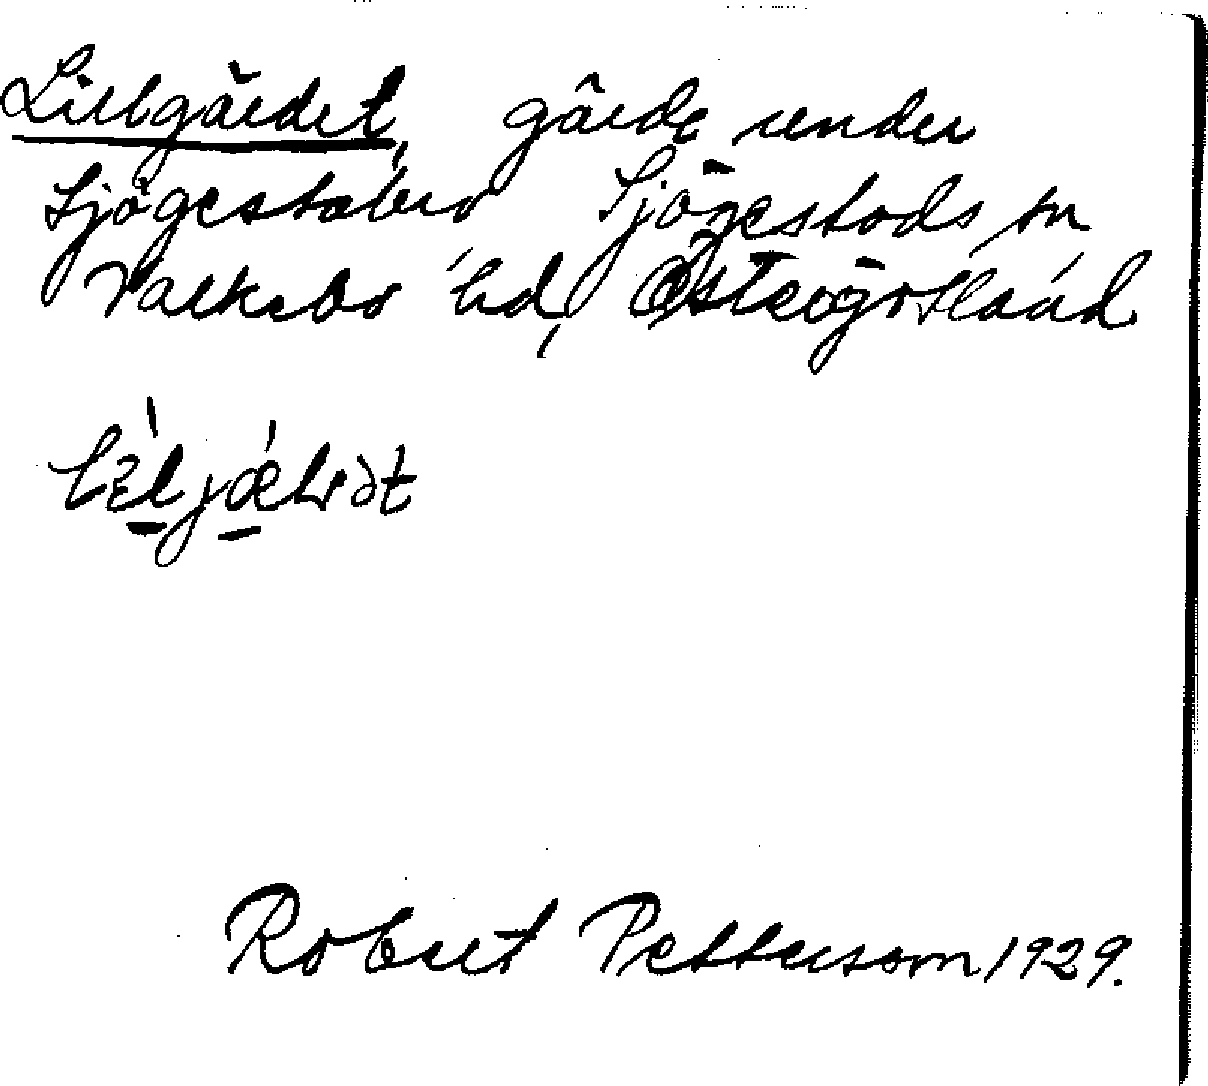 Lillgärdet, gärde under
Sjögestabro Sjögestads sn
Valkebo hd, Östergötland
Robert Pettersson 1929.